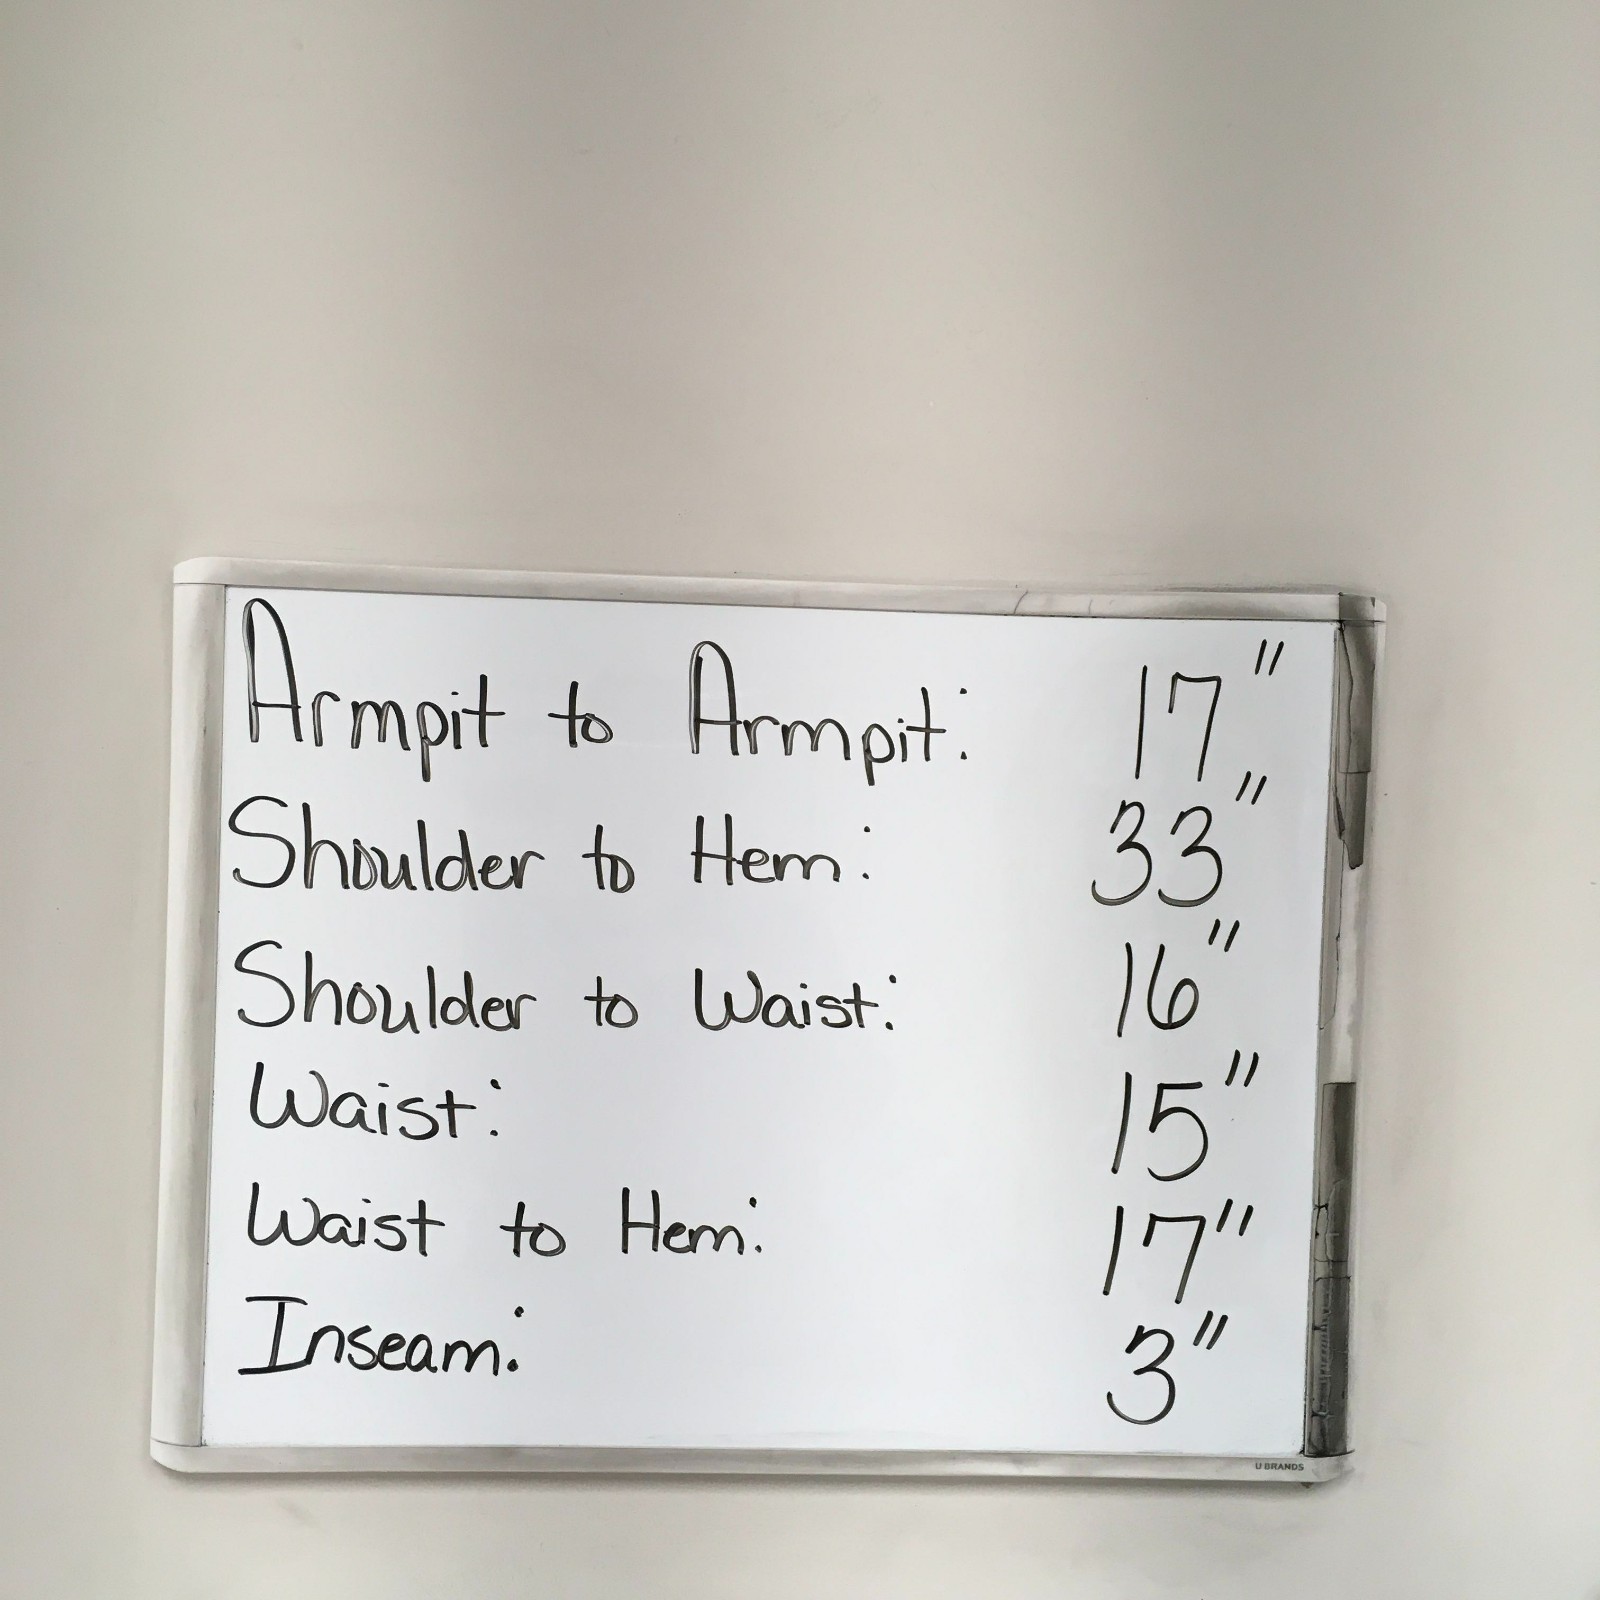 Armpit to Armpit: 17"
Shoulder to Hem: 33"
Shoulder to Waist: 16"
Waist: 15"
Waist to Hem: 17"
Inseam: 3"
U BRANDS